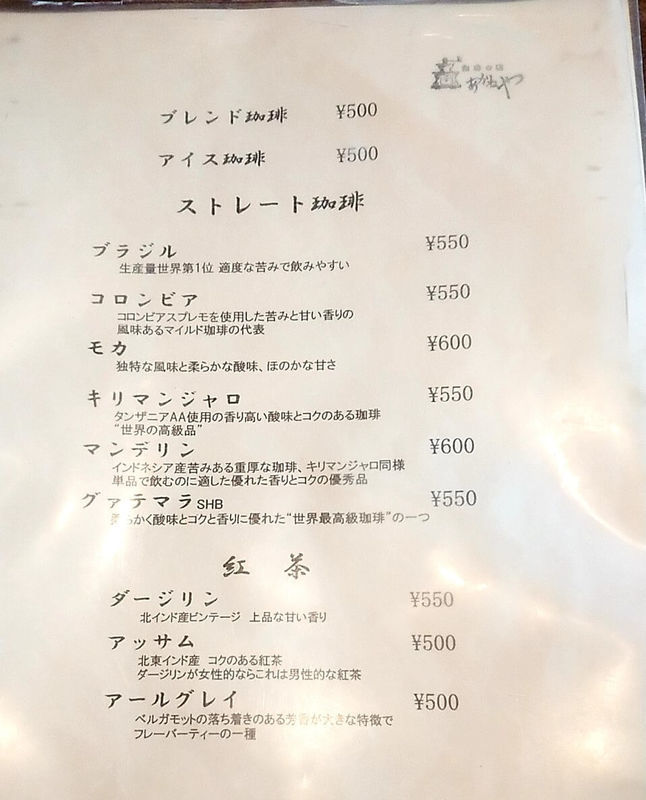 珈琲の店
あかねやつ
ブレンド珈琲 ¥500
アイス珈琲 ¥500
ストレート珈琲
ブラジル ¥550
生産量世界第1位 適度な苦みで飲みやすい
コロンビア ¥550
コロンビアスプレモを使用した苦みと甘い香りの
風味あるマイルド珈琲の代表
モカ ¥600
独特な風味と柔らかな酸味、ほのかな甘さ
キリマンジャロ ¥550
タンザニアAA使用の香り高い酸味とコクのある珈琲
“世界の高級品”
マンデリン ¥600
インドネシア産苦みある重厚な珈琲、キリマンジャロ同様
単品で飲むのに適した優れた香りとコクの優秀品
グァテマラSHB ¥550
柔らかく酸味とコクと香りに優れた“世界最高級珈琲”の一つ
紅茶
ダージリン ¥550
北インド産ビンテージ 上品な甘い香り
アッサム ¥500
北東インド産 コクのある紅茶
ダージリンが女性的ならこれは男性的な紅茶
アールグレイ ¥500
ベルガモットの落ち着きのある芳香が大きな特徴で
フレーバーティーの一種